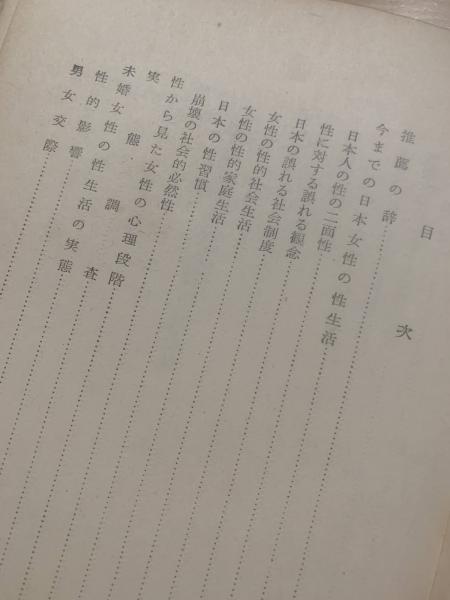 目次
推薦の辞
今までの日本女性の性生活
日本人の性の二面性
性に対する誤れる観念
日本の誤れる社会制度
女性の性的社会生活
女性の性的家庭生活
日本の性習慣
崩壊の社会的必然性
性から見た女性の心理段階
実態調査
未婚女性の性生活の実態
性的影響
男女交際